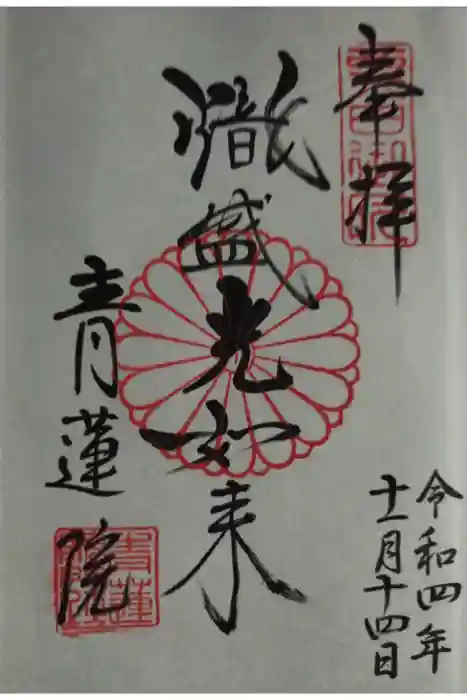 奉拝
令和四年
十一月十四日
熾盛光如来
青蓮院
青蓮